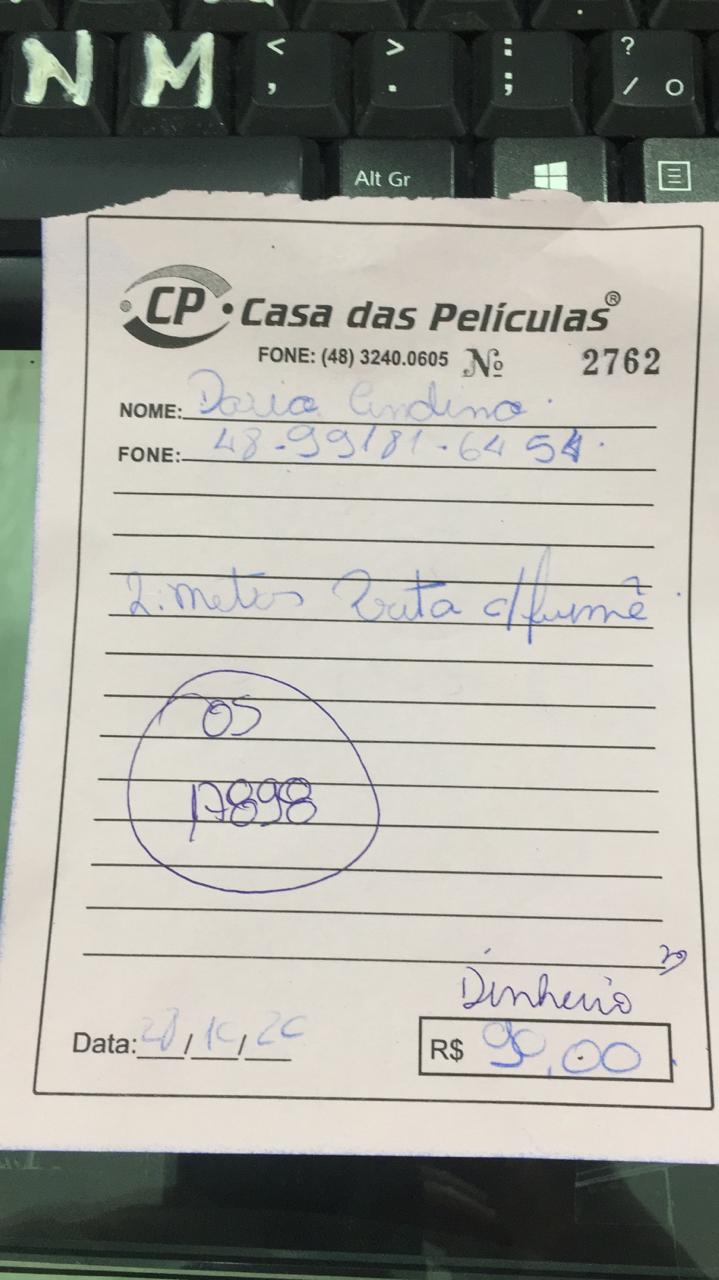 N M < , > . : ; ? / O
Alt Gr
CP Casa das Películas®
FONE: (48) 3240.0605 Nº 2762
NOME: Daria
FONE: 48-99181-6454
2. metros Preta c/fumê
OS
17898
Dinheiro
Data: 28/10/20
R$ 90,00